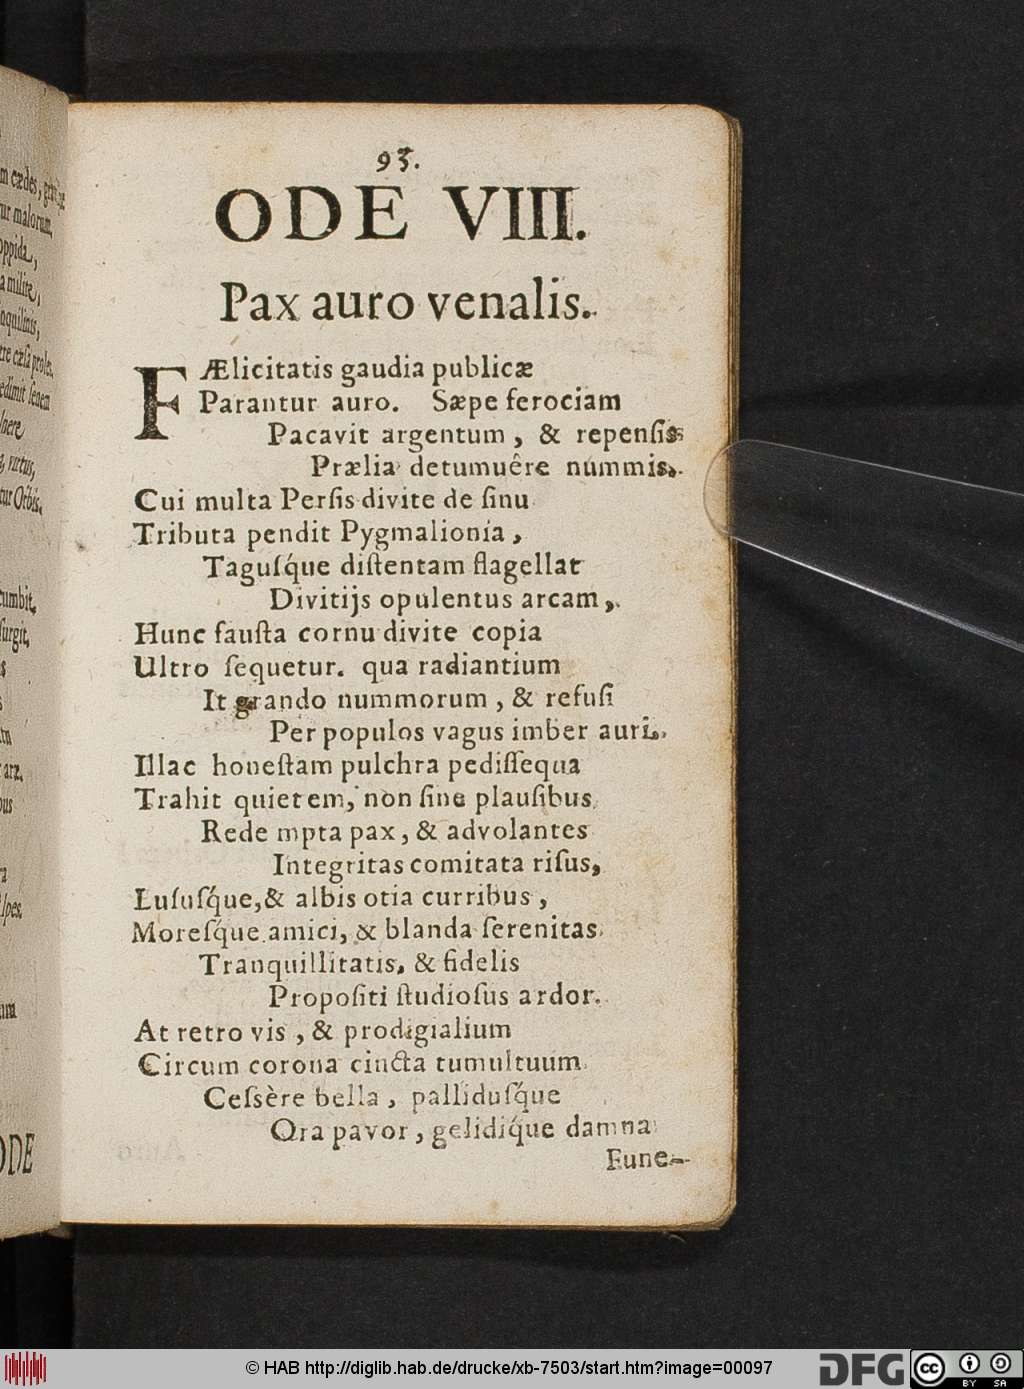 m cædes,
ur malorum,
oppida,
a milite,
nquilinis,
ere cæsa proles.
edimit senem
lnere
virtus,
tur Orbis.
cumbit,
surgit,
ODE
93.
ODE VIII.
Pax auro venalis.
FÆlicitatis gaudia publicæ
Parantur auro. Sæpe ferociam
Pacavit argentum, & repensis
Prælia detumuêre nummis.
Cui multa Persis divite de sinu
Tributa pendit Pygmalionia,
Taguſq́ue diſtentam flagellat
Divitijs opulentus arcam,
Hunc fauſta cornu divite copia
Ultro ſequetur. qua radiantium
It grando nummorum, & refuſi
Per populos vagus imber auri.
Illac honeſtam pulchra pediſſequa
Trahit quietem, non ſine plauſibus
Rede mpta pax, & advolantes
Integritas comitata riſus,
Luſuſq́ue, & albis otia curribus,
Moreſq́ue amici, & blanda ſerenitas
Tranquillitatis, & fidelis
Propoſiti ſtudioſus ardor.
At retro vis, & prodigialium
Circum corona cincta tumultuum
Ceſsère bella, palliduſq́ue
Ora pavor, gelidiq́ue damna
Fune-
© HAB http://diglib.hab.de/drucke/xb-7503/start.htm?image=00097
DFG
cc
BY SA